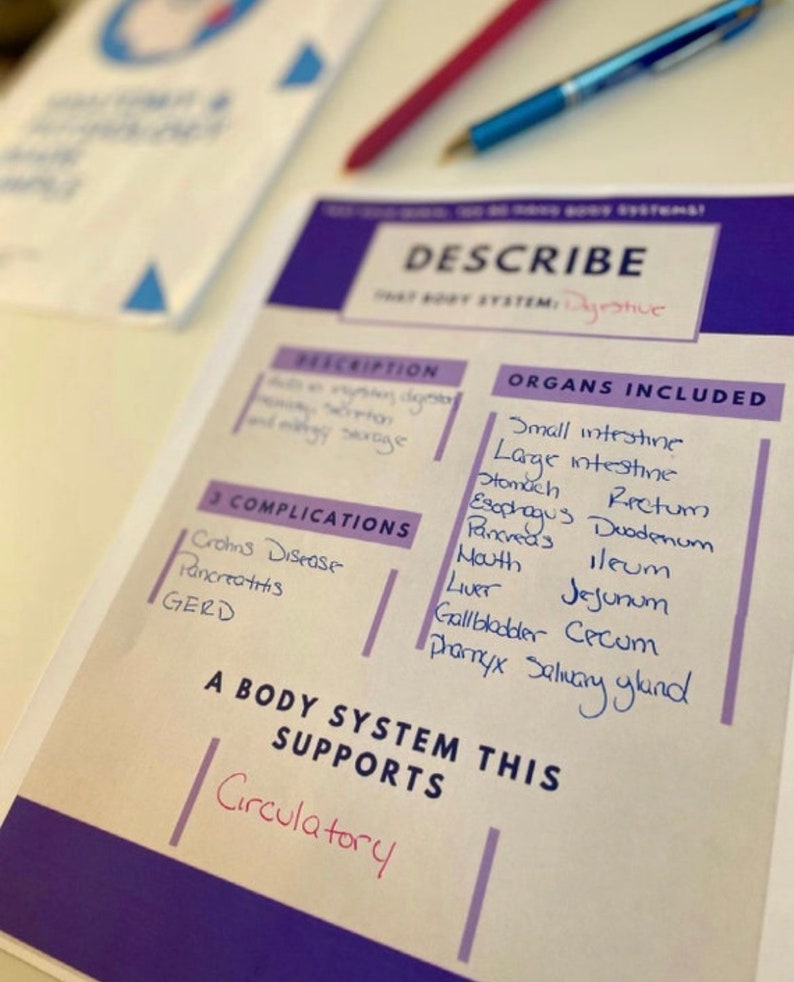 BODY SYSTEMS!
DESCRIBE
THAT BODY SYSTEM: Digestive
DESCRIPTION
ingesting, digestion
secretion
and energy storage
3 COMPLICATIONS
Crohns Disease
Pancreatitis
GERD
ORGANS INCLUDED
Small intestine
Large intestine
Stomach Rectum
Esophagus Duodenum
Pancreas Ileum
Mouth Jejunum
Liver Cecum
Gallbladder Salivary gland
Pharnyx
A BODY SYSTEM THIS
SUPPORTS
Circulatory